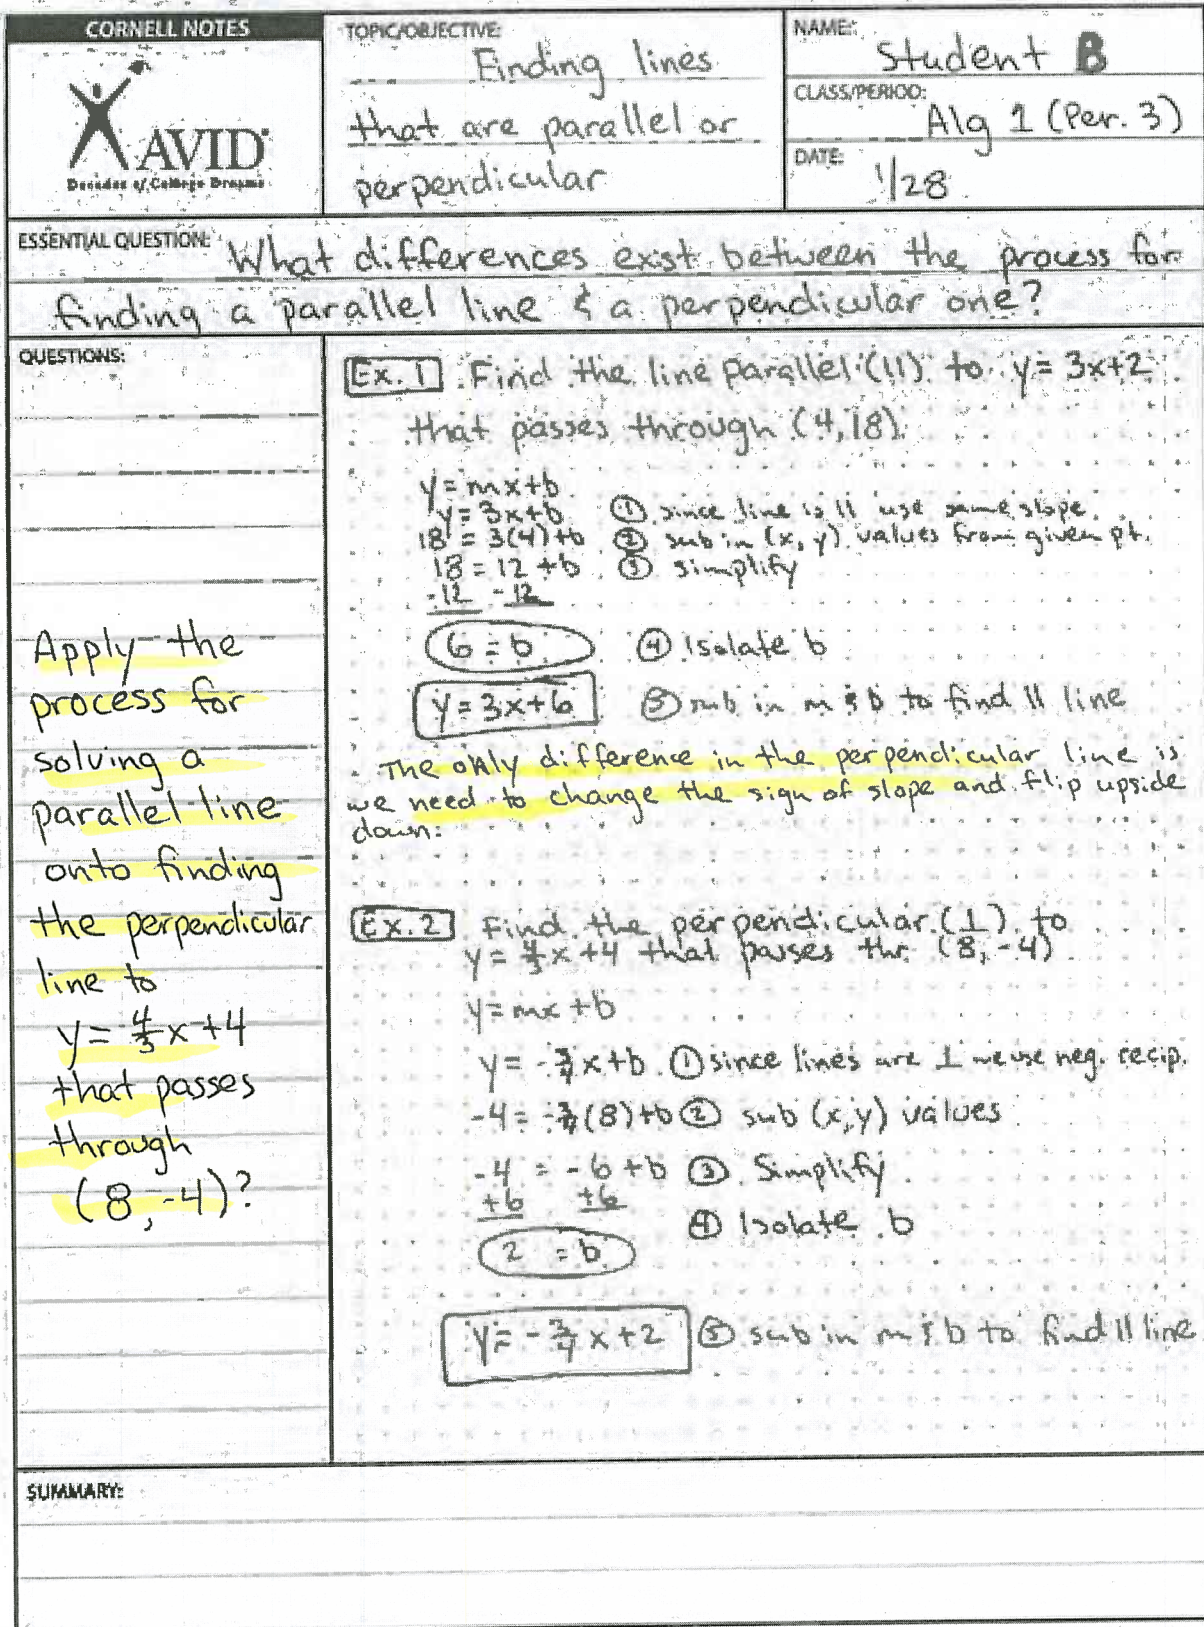 CORNELL NOTES
AVID
Decades of College Dreams
TOPIC/OBJECTIVE:
Finding lines
that are parallel or
perpendicular
NAME:
Student B
CLASS/PERIOD:
Alg 1 (Per. 3)
DATE:
1/28
ESSENTIAL QUESTION: What differences exist between the process for
finding a parallel line & a perpendicular one?
QUESTIONS:
Apply the
process for
solving a
parallel line
onto finding
the perpendicular
line to
y = 4/3 x + 4
that passes
through
(8, -4)?
Ex. 1 Find the line parallel (||) to y = 3x+2
that passes through (4, 18).
y = mx + b
y = 3x + b ① since line is || use same slope.
18 = 3(4) + b ② sub in (x, y) values from given pt.
18 = 12 + b ③ simplify
-12 -12
6 = b ④ Isolate b
y = 3x + 6 ⑤ sub in m & b to find || line
The only difference in the perpendicular line is
we need to change the sign of slope and flip upside
down.
Ex. 2 Find the perpendicular (⊥) to
y = 4/3 x + 4 that passes thr. (8, -4)
y = mx + b
y = -3/4 x + b ① since lines are ⊥ we use neg. recip.
-4 = -3/4 (8) + b ② sub (x, y) values
-4 = -6 + b ③ Simplify
+6 +6
④ Isolate b
2 = b
y = -3/4 x + 2 ⑤ sub in m & b to find || line
SUMMARY: